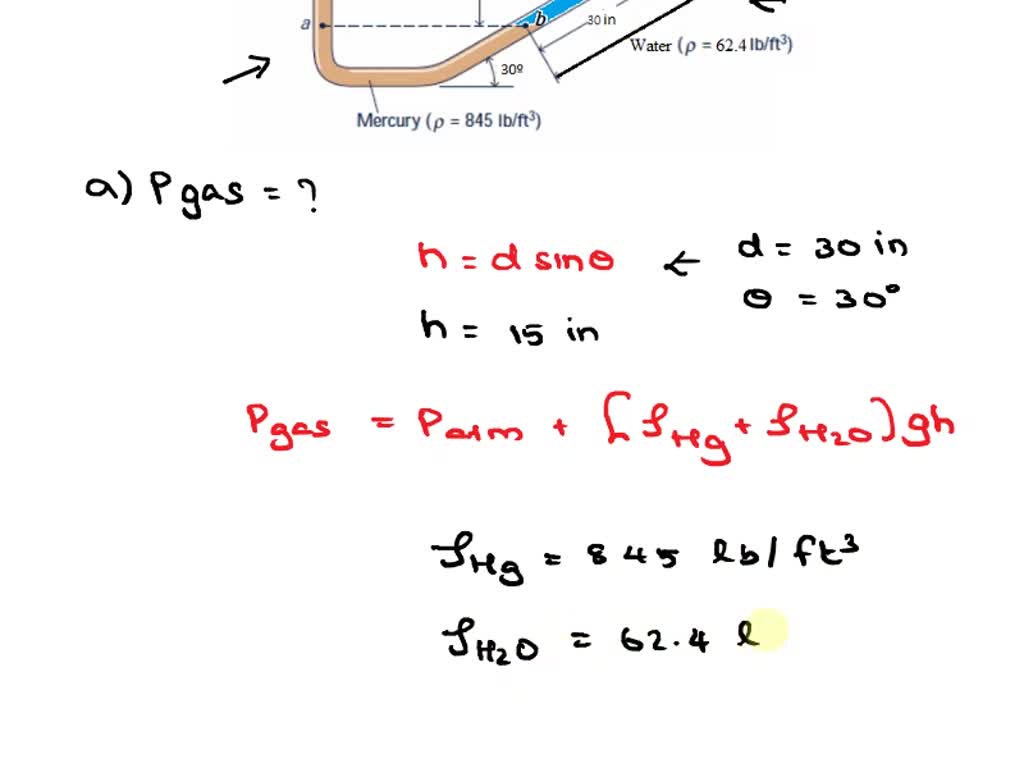 a
b
30 in
Water (ρ = 62.4 lb/ft³)
30º
Mercury (ρ = 845 lb/ft³)
a) Pgas = ?
h = d sinθ ← d = 30 in
θ = 30°
h = 15 in
Pgas = Patm + [ρHg + ρH2O) gh
ρHg = 845 lb/ft³
ρH2O = 62.4 l